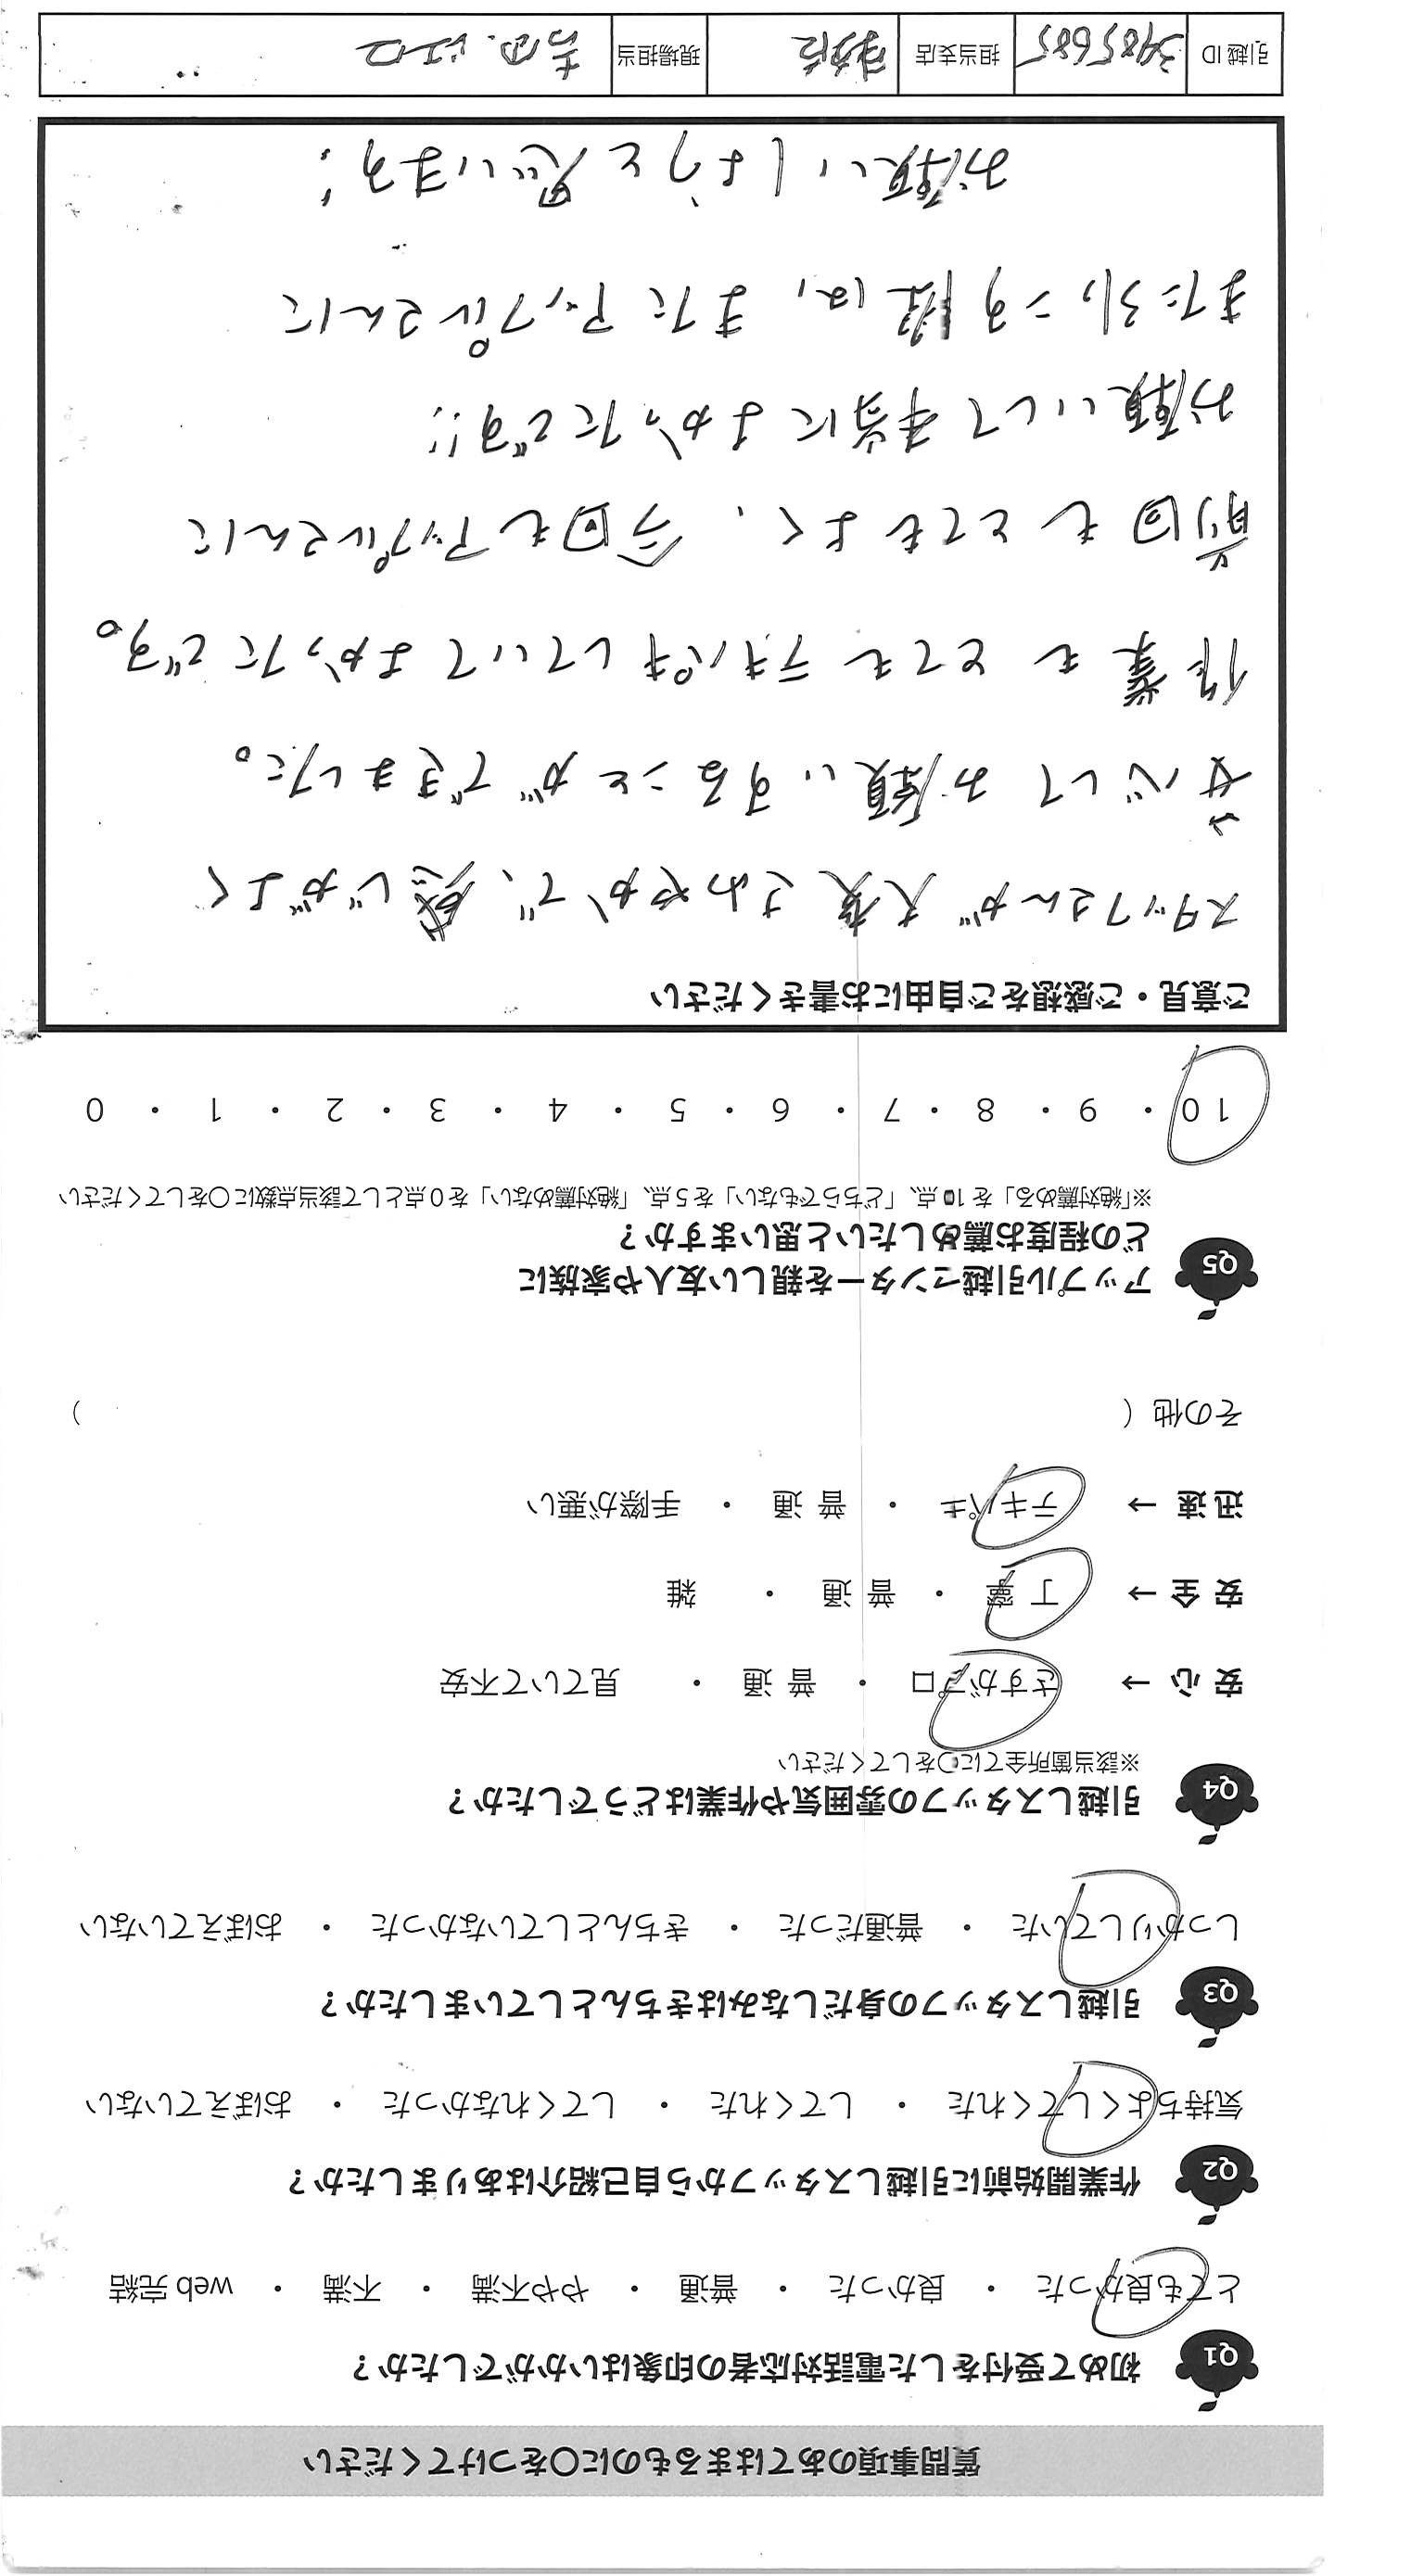 質問事項のあてはまるものに〇をつけてください
Q1 初めて受付をした電話対応者の印象はいかがでしたか?
とても良かった ・ 良かった ・ 普通 ・ やや不満 ・ 不満 ・ web 完結
Q2 作業開始前に引越しスタッフから自己紹介はありましたか?
気持ちよくしてくれた ・ してくれた ・ してくれなかった ・ おぼえていない
Q3 引越しスタッフの身だしなみはきちんとしていましたか?
しっかりしていた ・ 普通だった ・ きちんとしていなかった ・ おぼえていない
Q4 引越しスタッフの雰囲気や作業はどうでしたか?
※該当箇所全てに〇をしてください
安心 → さすがプロ ・ 普通 ・ 見ていて不安
安全 → 丁寧 ・ 普通 ・ 雑
迅速 → テキパキ ・ 普通 ・ 手際が悪い
その他 ( )
Q5 アップル引越センターを親しい友人や家族に
どの程度お薦めしたいと思いますか?
※「絶対薦める」を 10 点、「どちらでもない」を 5 点、「絶対薦めない」を 0 点として該当点数に〇をしてください
10 ・ 9 ・ 8 ・ 7 ・ 6 ・ 5 ・ 4 ・ 3 ・ 2 ・ 1 ・ 0
ご意見・ご感想をご自由にお書きください
スタッフさんが大変さわやかで、感じがよく
安心してお願いすることができました。
作業もとてもテキパキしていてよかったです。
前回もとてもよく、今回もアップルさんに
お願いして本当によかったです!!
また引っこす際は、またアップルさんに
お願いしようと思います!
引越 ID 3985685 担当支店 現場担当